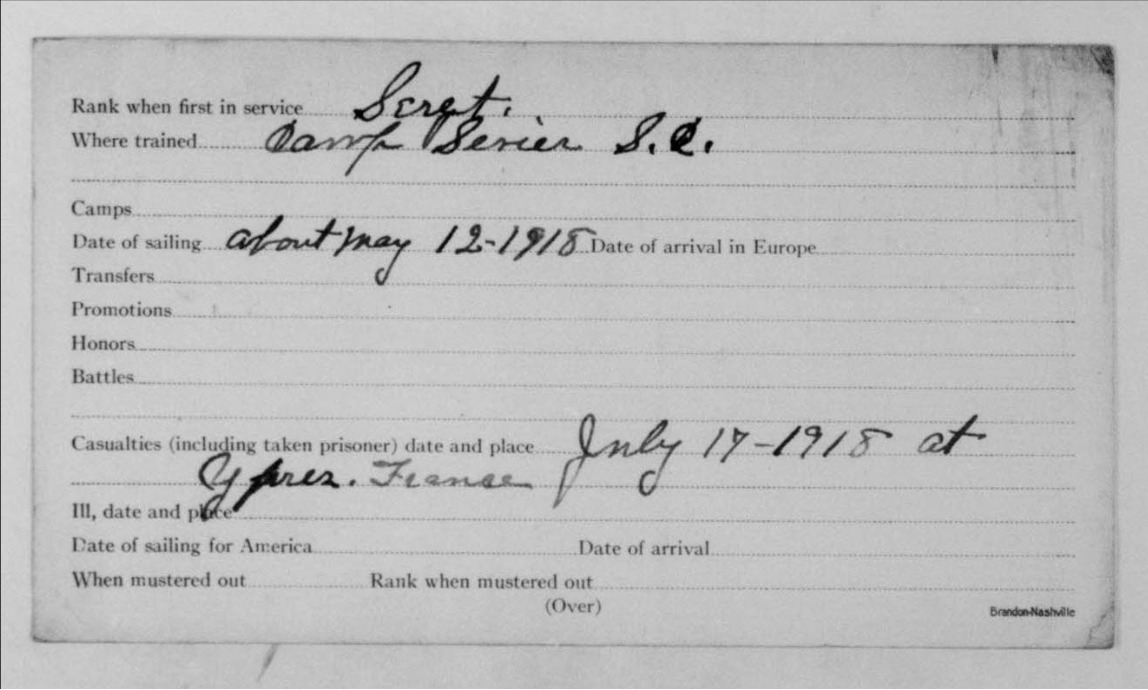 Rank when first in service Sergt.
Where trained Camp Sevier S.C.
Camps
Date of sailing about May 12-1918 Date of arrival in Europe
Transfers
Promotions
Honors
Battles
Casualties (including taken prisoner) date and place July 17-1918 at
Ypres. France
Ill, date and place
Date of sailing for America Date of arrival
When mustered out Rank when mustered out
(Over)
Brandon-Nashville